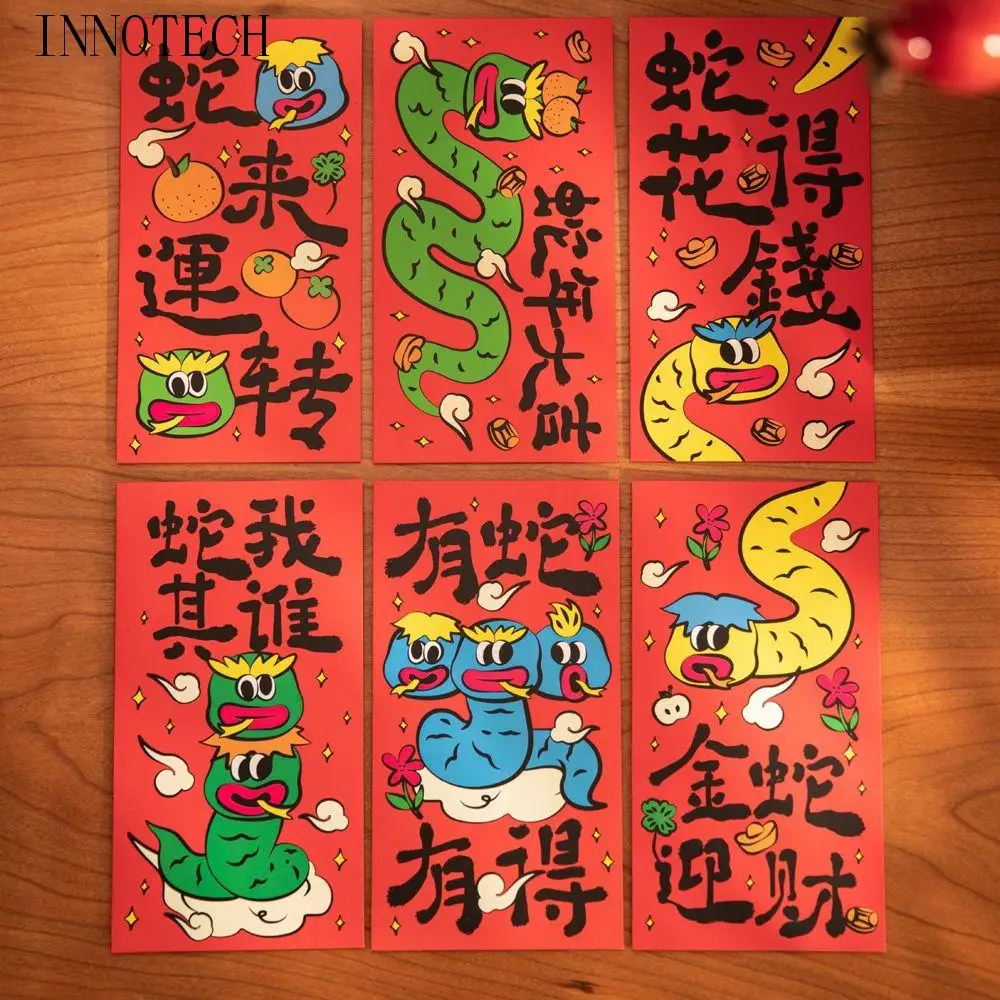 INNOTECH
蛇
来
運
转
蛇年大吉
蛇
得
花
錢
蛇我
其谁
有蛇
有得
金蛇
迎财